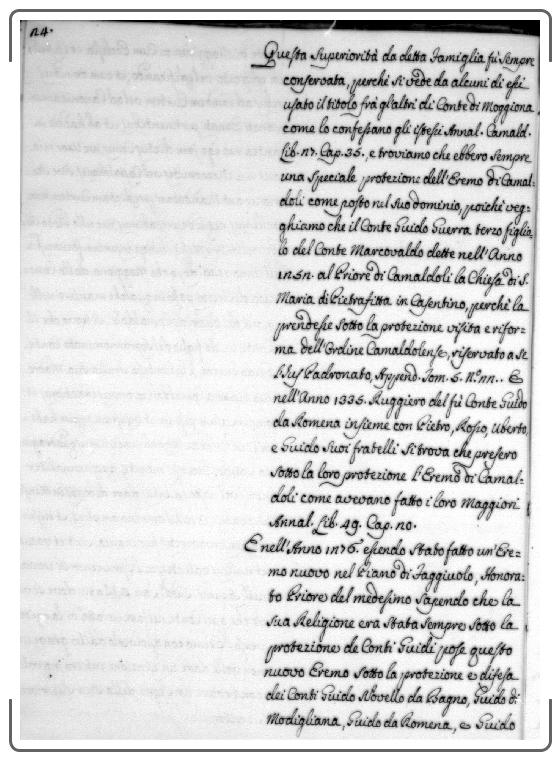 24.
Questa Superiorità da detta Famiglia fù sempre
conservata, perchè si vede da alcuni di essi
usato il titolo frà gl'altri di Conte di Moggiona
come lo confessano gli istessi Annal. Camald.
Lib. 27. Cap. 35., e troviamo che ebbero sempre
una speciale protezione dell'Eremo di Camal=
doli come posto nel suo dominio, poichè veg=
ghiamo che il Conte Guido Guerra terzo figlio
lo del Conte Marcovaldo dette nell'Anno
al Priore di Camaldoli la Chiesa di S.
Maria di Pietrafitta in Casentino, perchè la
prendesse sotto la protezione visita e rifor=
ma dell'Ordine Camaldolense, riservato a se
l'Jus Padronato, Append. Tom. 5. N.° 22.. E
nell'Anno 1335. Ruggiero del fù Conte Guido
da Romena insieme con Pietro, Rosso, Uberto,
e Guido suoi fratelli si trova che presero
sotto la loro protezione l'Eremo di Camal=
doli come avevano fatto i loro Maggiori
Annal. Lib. 49. Cap. 20.
E nell'Anno essendo stato fatto un'Ere=
mo nuovo nel Piano di Faggiuolo, Honora=
to Priore del medesimo sapendo che la
sua Religione era stata sempre sotto la
protezione de Conti Guidi pose questo
nuovo Eremo sotto la protezione e difesa
dei Conti Guido Novello da Bagno, Guido di
Modigliana, Guido da Romena, e Guido